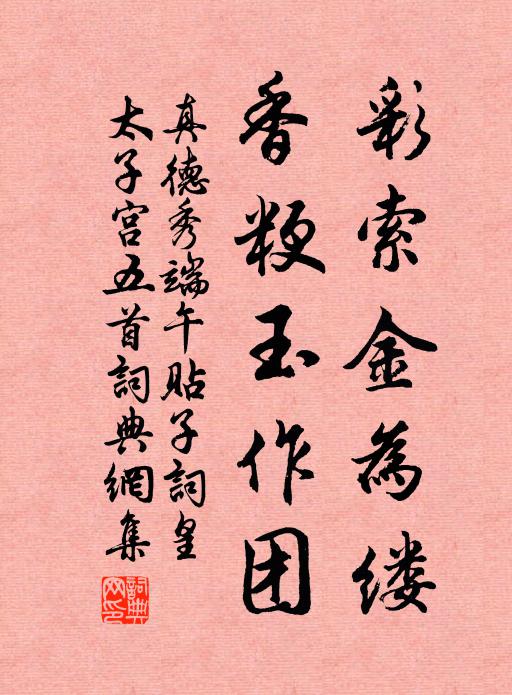 彩索金為缕
香粳玉作团
真德秀端午貼子詞皇
太子宫五首詞典網集
詞典
网印